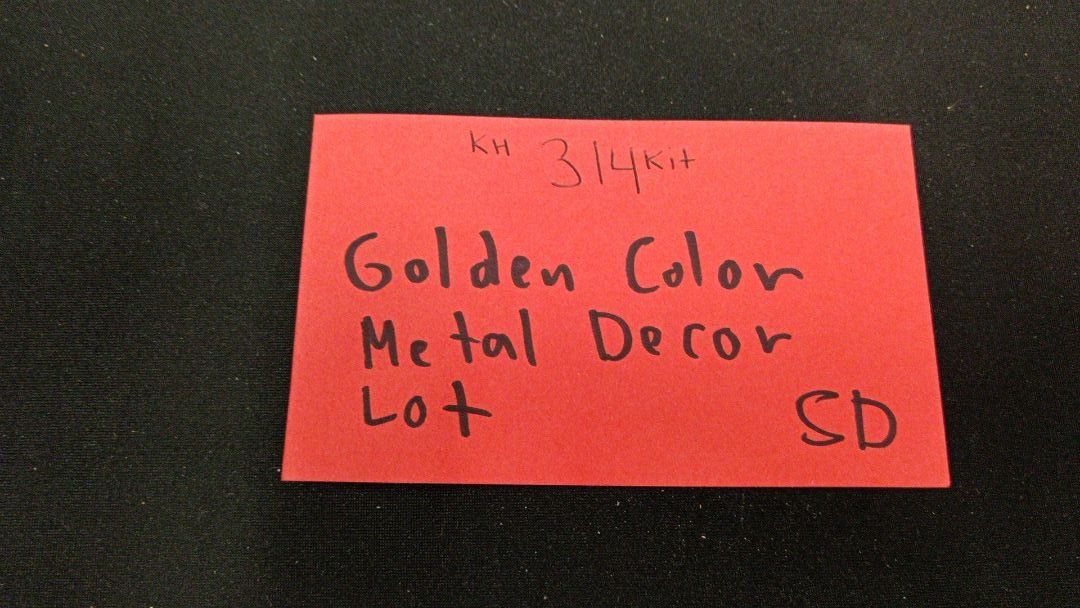 KH 314 Kit
Golden Color
Metal Decor
Lot SD